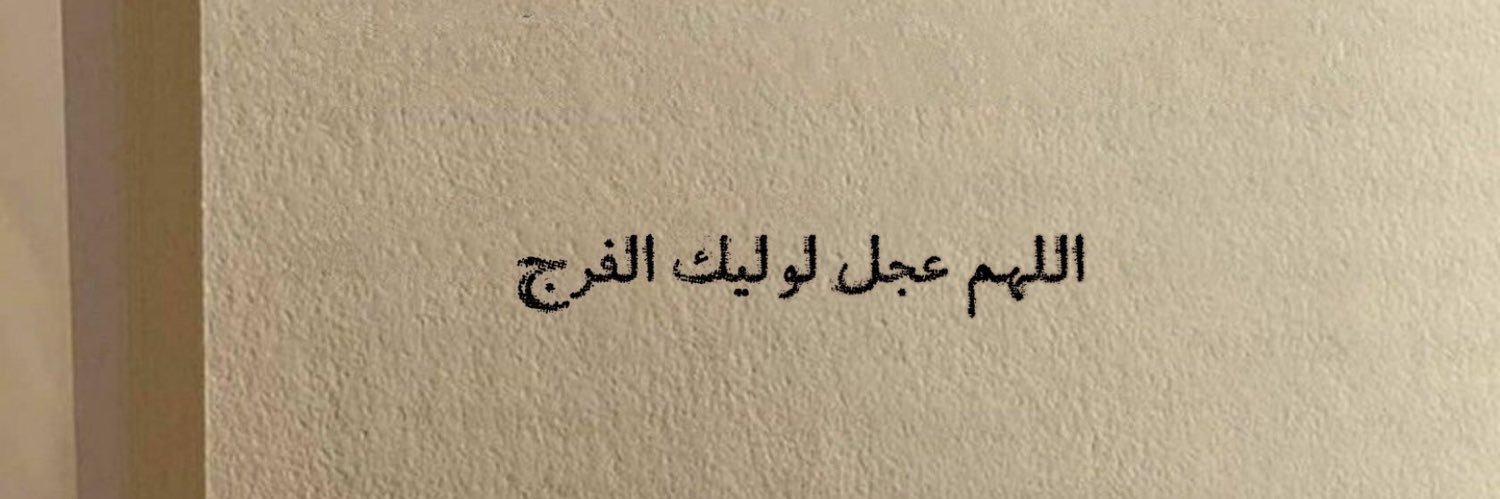 اللهم عجل لوليك الفرج